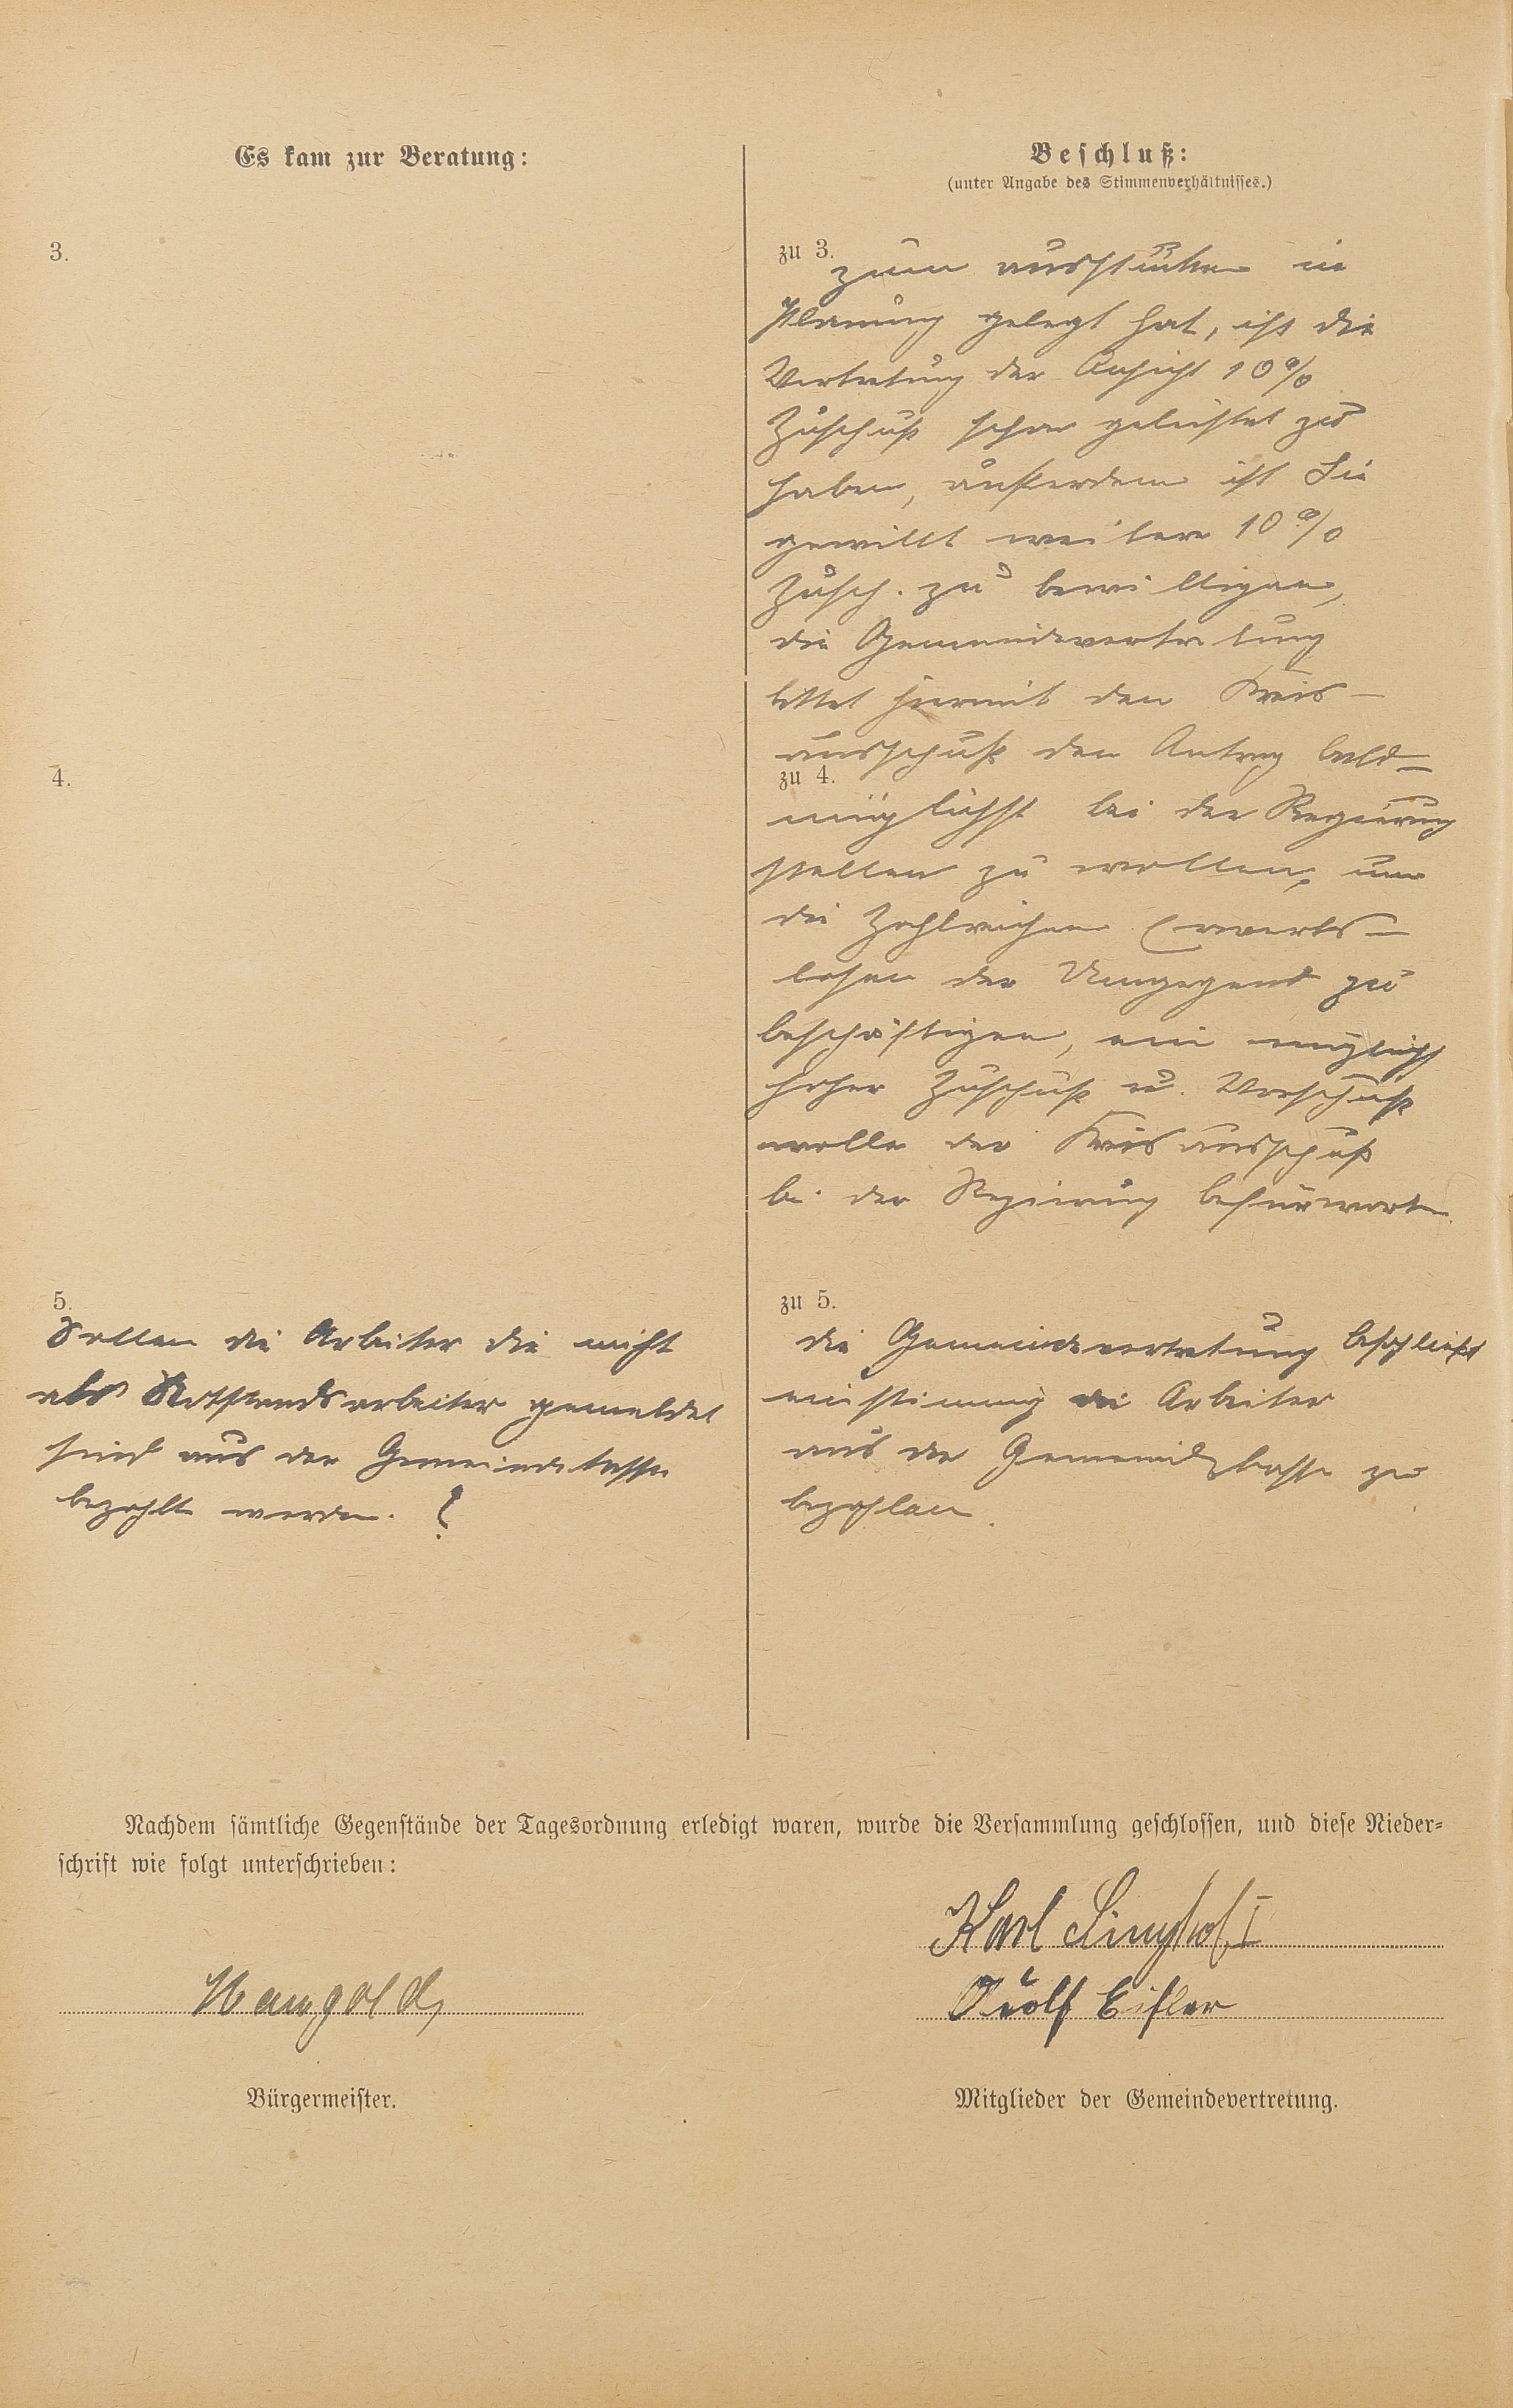 Es kam zur Beratung:
Beschluß:
(unter Angabe des Stimmenverhältnisses.)
3.
zu 3.
zum in
Planung gelegt hat, ist die
Vertretung der Ansicht 10%
Zuschuß schon geleistet zu
haben, außerdem ist Sie
gewillt weitere 10%
Zusch. zu bewilligen,
die Gemeindevertretung
bittet hiermit den Kreis-
ausschuß den Antrag bald-
4.
zu 4.
möglichst bei der Regierung
stellen zu wollen, um
die Zahlreichen Erwerbs-
losen der Umgegend zu
beschäftigen, ein möglichst
hoher Zuschuß u. Vorschuß
wolle der Kreisausschuß
bei der Regierung befürworten.
5.
Sollen die Arbeiter die nicht
als Notstandsarbeiter gemeldet
sind aus der Gemeindekasse
bezahlt werden. ?
zu 5.
die Gemeindevertretung beschließt
einstimmig die Arbeiter
aus der Gemeindekasse zu
bezahlen.
Nachdem sämtliche Gegenstände der Tagesordnung erledigt waren, wurde die Versammlung geschlossen, und diese Nieder-
schrift wie folgt unterschrieben:
Karl I
Mangold
Adolf Eifler
Bürgermeister.
Mitglieder der Gemeindevertretung.